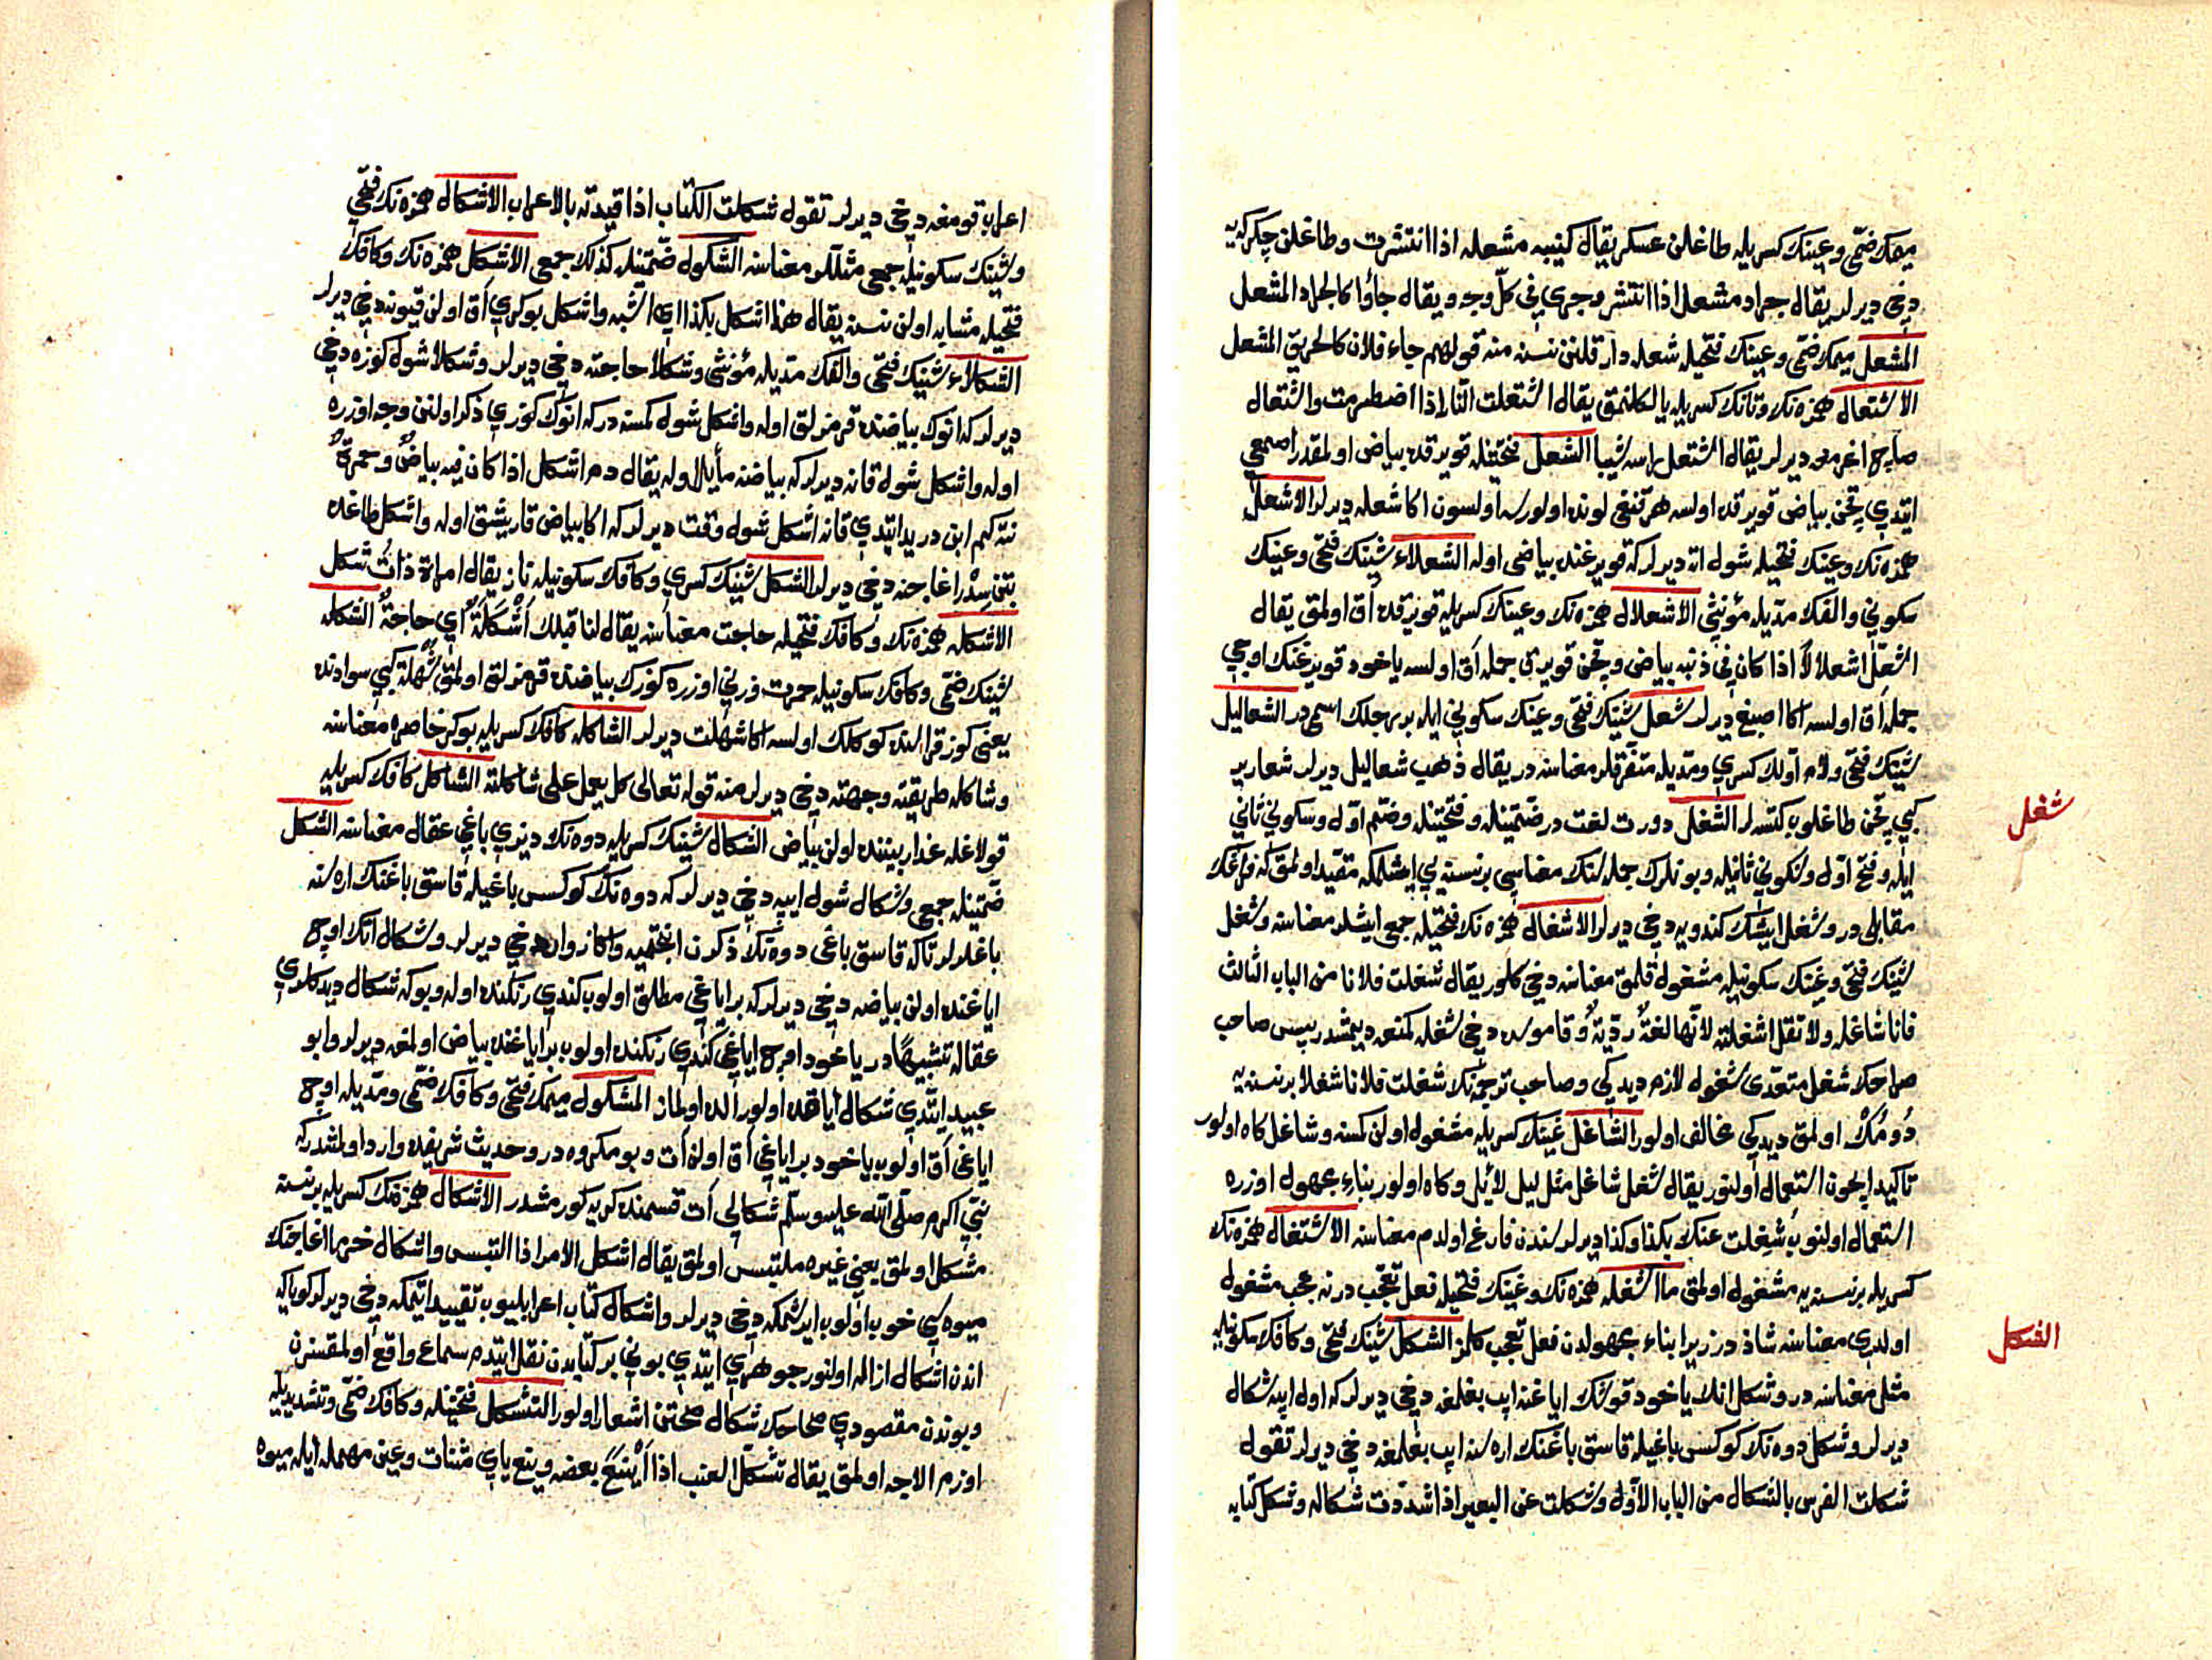 میمك ضمّی وعینك كسریله طاغلن عسكر یقال كتیبه مشعله اذا انتشرت وطاغلن چكركه‌یه
دخی دیرلر یقال جراد مشعل اذا انتشر وجری فی كلّ وجه ویقال جاؤا كالجراد المشعل
المشعل میمك ضمّی وعینك فتحیله شعله دار قلنن نسنه منه قولهم جاء فلان كالحریق المشعل
الاشتعال همزه‌نك وتانك كسریله یالكلنمق یقال اشتعلت النّار اذا اضطرمت واشتعال
صاچ اغرمغه دیرلر یقال اشتعل راسه شیبا الشعل فتحتینله قویرقده بیاض اولمقدر اصمعی
ایتدی قچن بیاض قویرقده اولسه هر قنغی لونده اولورسه اولسون اكا شعله دیرلر الاشعل
همزه‌نك وعینك فتحیله شول اته دیرلركه قویرغنده بیاض اوله الشعلاء شینك فتحی وعینك
سكونی والفك مدّیله مؤنثی الاشعلال همزه‌نك وعینك كسریله قویرقده اق اولمق یقال
اشعلّ اشعلالاً اذا كان فی ذنبه بیاض وقچن قویرغی جمله اق اولسه یاخود قویرغنك اوجی
جمله اق اولسه اكا اصبغ دیرلر شعل شینك فتحی وعینك سكونی ایله بر رجلك اسمی‌در الشعالیل
شینك فتحی ولام اوّلك كسری ومدّیله متفرّقلر معناسنه‌در یقال ذهب شعالیل دیرلر شعاریر
كبی قچن طاغلوب كتسه‌لر الشغل دورت لغت‌در ضمّتینله وفتحتینله وضمّ اوّل وسكون ثانی
شغل
ایله وفتح اوّل وسكون ثانیله وبونلرك جمله‌سنك معناسی برنسنه‌یی ایشلمكه مقیّد اولمق كه فراغك
مقابلی‌در وشغل ایشك كندویه دخی دیرلر الاشغال همزه‌نك فتحیله جمعی ایشلر معناسنه وشغل
شینك فتحی وغینك سكونیله مشغول قلمق معناسنه دخی كلور یقال شغلت فلانا من الباب الثالث
فانا شاغله ولا تقل اشغلته لانّها لغةٌ ردّیةٌ وقاموسده دخی شغله كمنعه دیمشدر پس صاحب
صراحك شغل متعدّی شغول لازم دیدكی وصاحب ترجمه‌نك شغلت فلانا شغلا برنسنه‌یه
دُومُكْ اولمق دیدكی مخالف اولور الشاغل غینك كسریله مشغول اولن كمسنه وشاغل كاه اولور
تاكید ایچون استعمال اولنور یقال شغل شاغل مثل لیل لائل وكاه اولور بناء مجهول اوزره
استعمال اولنوب شغلت عنك بكذا وكذا دیرلر سندن فارغ اولدم معناسنه الاشتغال همزه‌نك
كسریله برنسنه‌یه مشغول اولمق ما اشغله همزه‌نك وغینك فتحیله فعل تعجّب‌در نه عجب مشغول
اولدی معناسنه شاذدر زیرا بناء مجهولدن فعل تعجّب كلمز الشكل شینك فتحی وكافك سكونیله
الشكل
مثل معناسنه‌در وشكل اتك یاخود قوشك ایاغنه ایپ بغلمغه دخی دیرلركه اول ایپه شكال
دیرلر وشكل دوه‌نك كوكس باغیله قاسق باغنك اراسنه ایپ بغلمغه دخی دیرلر تقول
شكلت الفرس بالشكال من الباب الاوّل وشكلت عن البعیر اذا شددت شكاله وشكل كتابه
اعراب قومغه دخی دیرلر تقول شكلت الكتاب اذا قیدته بالاعراب الاشكال همزه‌نك فتحی
وشینك سكونیله جمعی مثللر معناسنه الشكول ضمّتینله كذلك جمعی الاشكل همزه‌نك وكافك
فتحیله مشابه اولن نسنه یقال هذا اشكل بكذا ای اشبه واشكل بوكری اق اولن قیونه دخی دیرلر
الشكلاء شینك فتحی والفك مدّیله مؤنثی وشكلا حاجته دخی دیرلر وشكلا شول كوزه دخی
دیرلركه انوك بیاضنده قرمزلق اوله واشكل شول كمسنه‌دركه انوك كوزی ذكر اولنن وجه اوزره
اوله واشكل شول قانه دیرلركه بیاضه مایل اوله یقال دم اشكل اذا كان فیه بیاضٌ وحمرةٌ
نته‌كیم ابن درید ایتدی قانه اشكل شول وقت دیرلركه اكا بیاض قارشق اوله واشكل طاغده
بتن سِدْر اغاجنه دخی دیرلر الشكل شینك كسری وكافك سكونیله ناز یقال امراة ذات شكل
الاشكله همزه‌نك وكافك فتحیله حاجت معناسنه یقال لنا قبلك اَشْكَلَةٌ ای حاجةٌ الشكله
شینك ضمّی وكافك سكونیله حمرت وزنی اوزره كوزك بیاضنده قرمزلق اولمق شُهلة كبی سوادنده
یعنی كوز قراسنده كوكلك اولسه اكا شهلت دیرلر الشاكله كافك كسریله بوكر خاصره معناسنه
وشاكله طریقته وجهته دخی دیرلر منه قوله تعالی كل یعمل علی شاكلته الشاكل كافك كسریله
قولاغله عذار بیننده اولن بیاض الشكال شینك كسریله دوه‌نك دیزی باغی عقال معناسنه الشكل
ضمّتینله جمعی وشكال شول ایپه دخی دیرلركه دوه‌نك كوكسی باغیله قاسق باغنك اراسنه
باغلرلر تاكه قاسق باغی دوه‌نك ذكرن انجتمیه واكا زوار دخی دیرلر وشكال اتك اوچ
ایاغنده اولن بیاضه دخی دیرلركه بر ایاغی مطلق اولوب كندی رنكنده اوله وبوكه شكال دیدكلری
عقاله تشبیهًا‌در یاخود اوچ ایاغی كندی رنكنده اولوب بر ایاغنده بیاض اولمغه دیرلر وابو
عبید ایتدی شكال ایاقده اولور الده اولماز المشكول میمك فتحی وكافك ضمّی ومدّیله اوچ
ایاغی اق اولوب یاخود بر ایاغی اق اولن ات وبو مكروه‌در وحدیث شریفده وارد اولمشدركه
نبی اكرم صلّی الله علیه وسلّم شكالی ات قسمنده كریه كورمشدر الاشكال همزه‌نك كسریله برنسنه
مشكل اولمق یعنی غیره ملتبس اولمق یقال اشكل الامر اذا التبس واشكال خرما اغاجنك
میوه‌سی خوب اولوب ایرشمكه دخی دیرلر واشكال كتاب اعرابلیوب تقیید ایتمكه دخی دیرلر كویاكه
اندن اشكال ازاله اولنور جوهری ایتدی بونی بر كتابدن نقل ایتدم سماع واقع اولمقسزن
وبوندن مقصودی صحاحك شكال صحتن اشعار اولور التشكل فتحتینله وكافك ضمّی وتشدیدیله
اوزم الاجه اولمق یقال تشكّل العنب اذا اَیْنَعَ بعضه وینع یای مثنات وعین مهمله ایله میوه